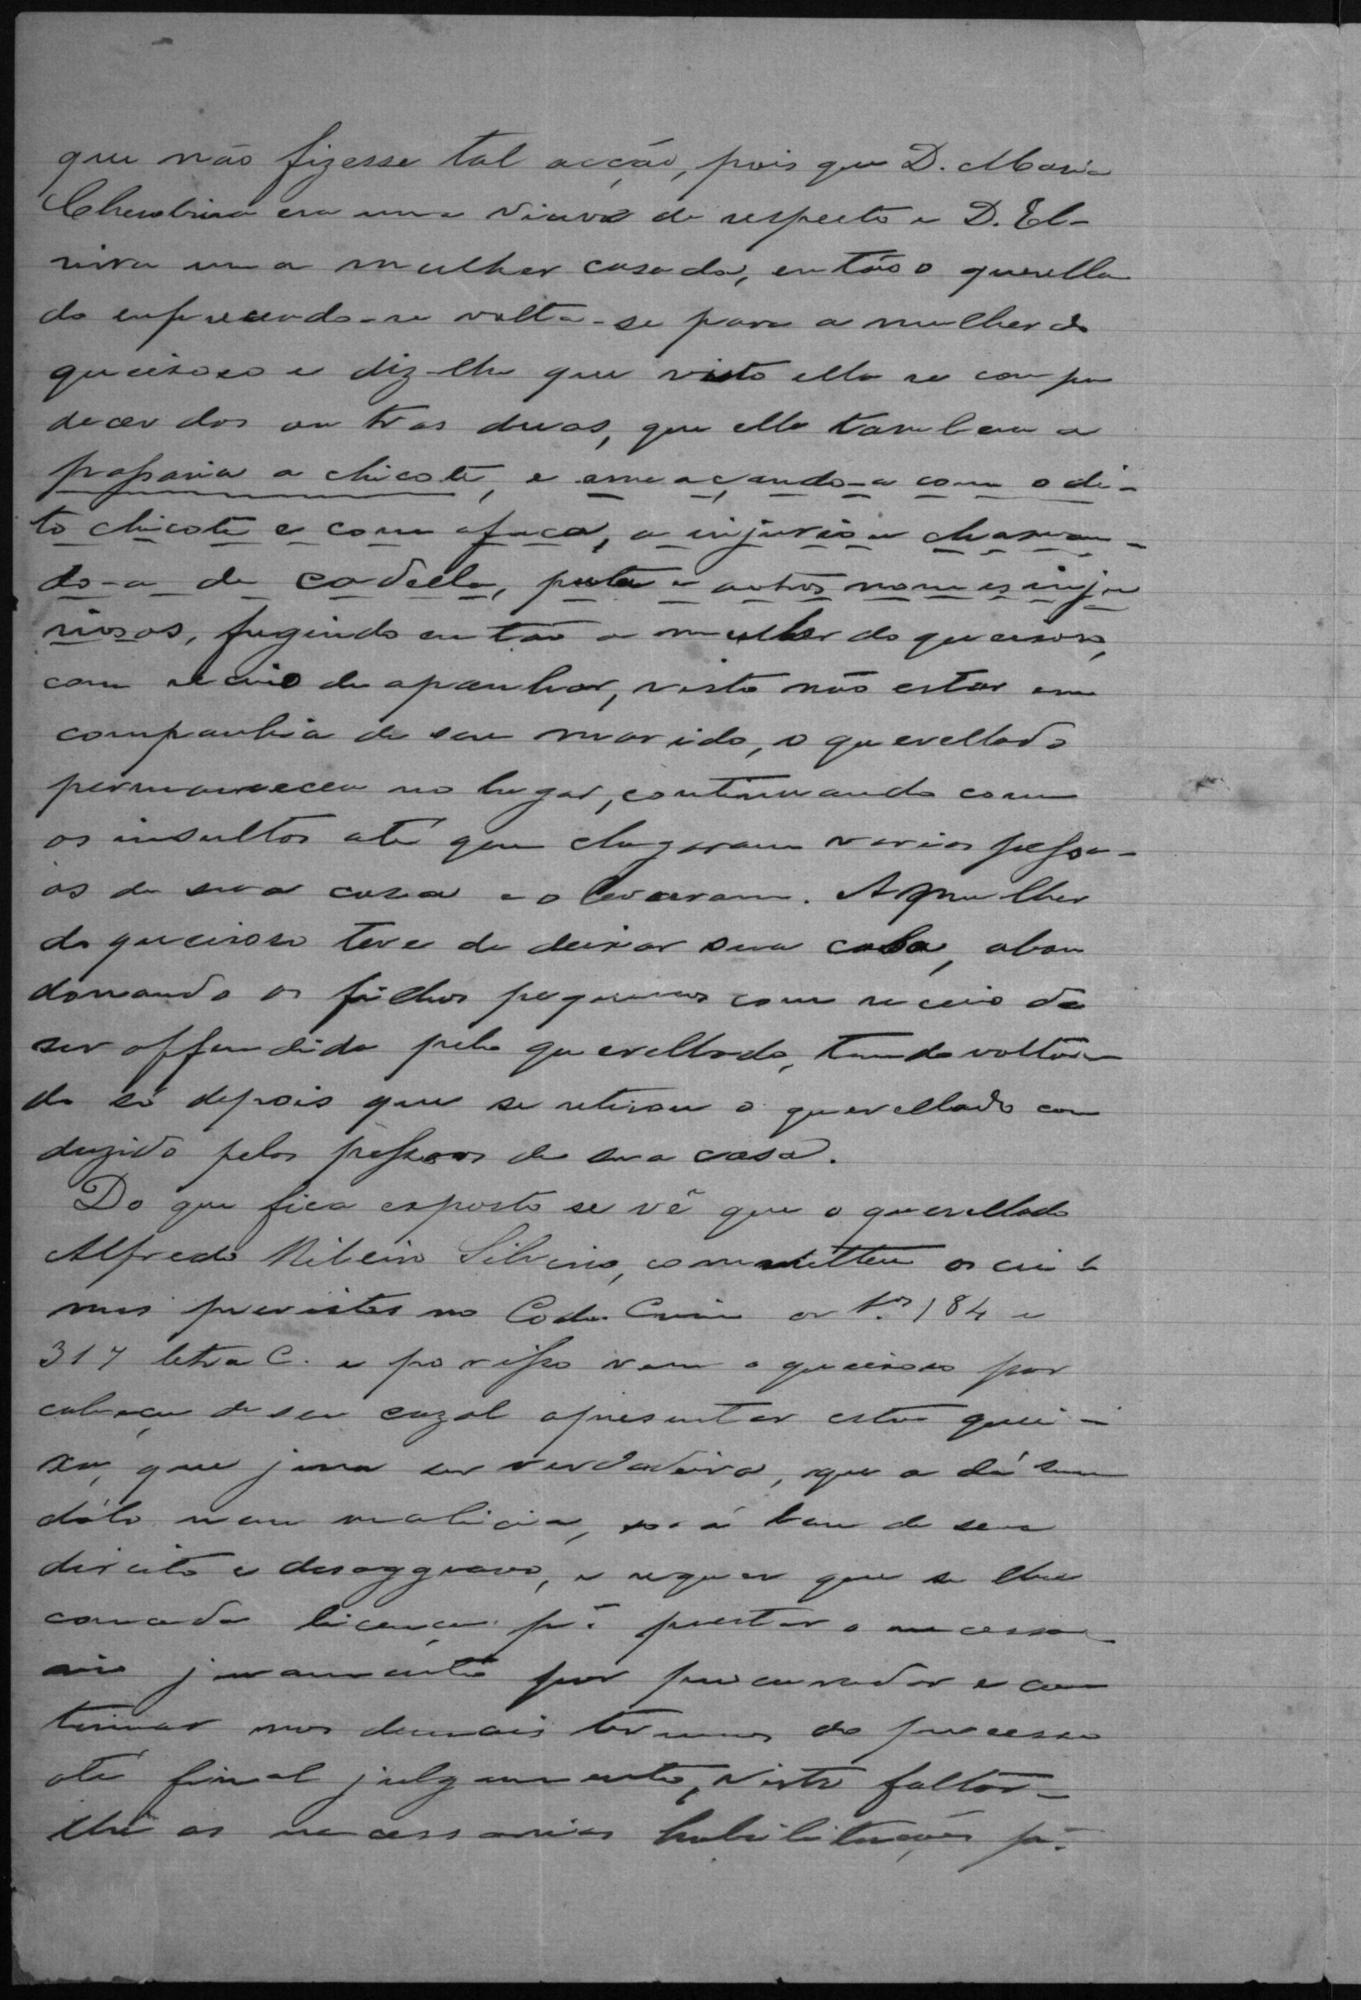 que não fizesse tal acção, pois que D. Maria
Cherubina era uma viuva de respecto e D. El-
vira uma mulher casada, então o querella
do enfurecendo-se volta-se para a mulher do
queixoso e diz-lhe que visto ella se compa
decer das outras duas, que elle tambem a
passaria a chicote, e ameaçando-a com o di-
to chicote e com a faca, a injuriou chaman-
do-a de cadella, puta e outros nomes inju
riosos, fugindo então a mulher do queixoso,
com receio de apanhar, visto não estar em
companhia de seu marido, o querellado
permaneceu no lugar, continuando com
os insultos até que chegaram varias pesso-
as de sua casa e o levaram. A mulher
do queixoso teve de deixar sua casa, aban
donando os filhos pequenos com receio de
ser offendida pelo querellado, tendo voltan-
do só depois que se retirou o querellado con
duzido pelas pessoas de sua casa.
Do que fica exposto se vê que o querellado
Alfredo Ribeiro Silverio, commetteu os cri
mes previstos no Cod. Crim ar tºs 184 e
317 letra C. e por isso vem o queixoso por
cabeça de seu cazal apresentar esta quei-
xa, que jura ser verdadeira, que a dá sem
dólo nem malicia, só á bem de seu
direito e desaggravo, e requer que se lhe
conceda licença pª prestar o necessa
rio juramento por procurador e con
tinuar nos demais termos do processo
até final julgamento, visto faltar-
lhe as necessarias habilitações pª